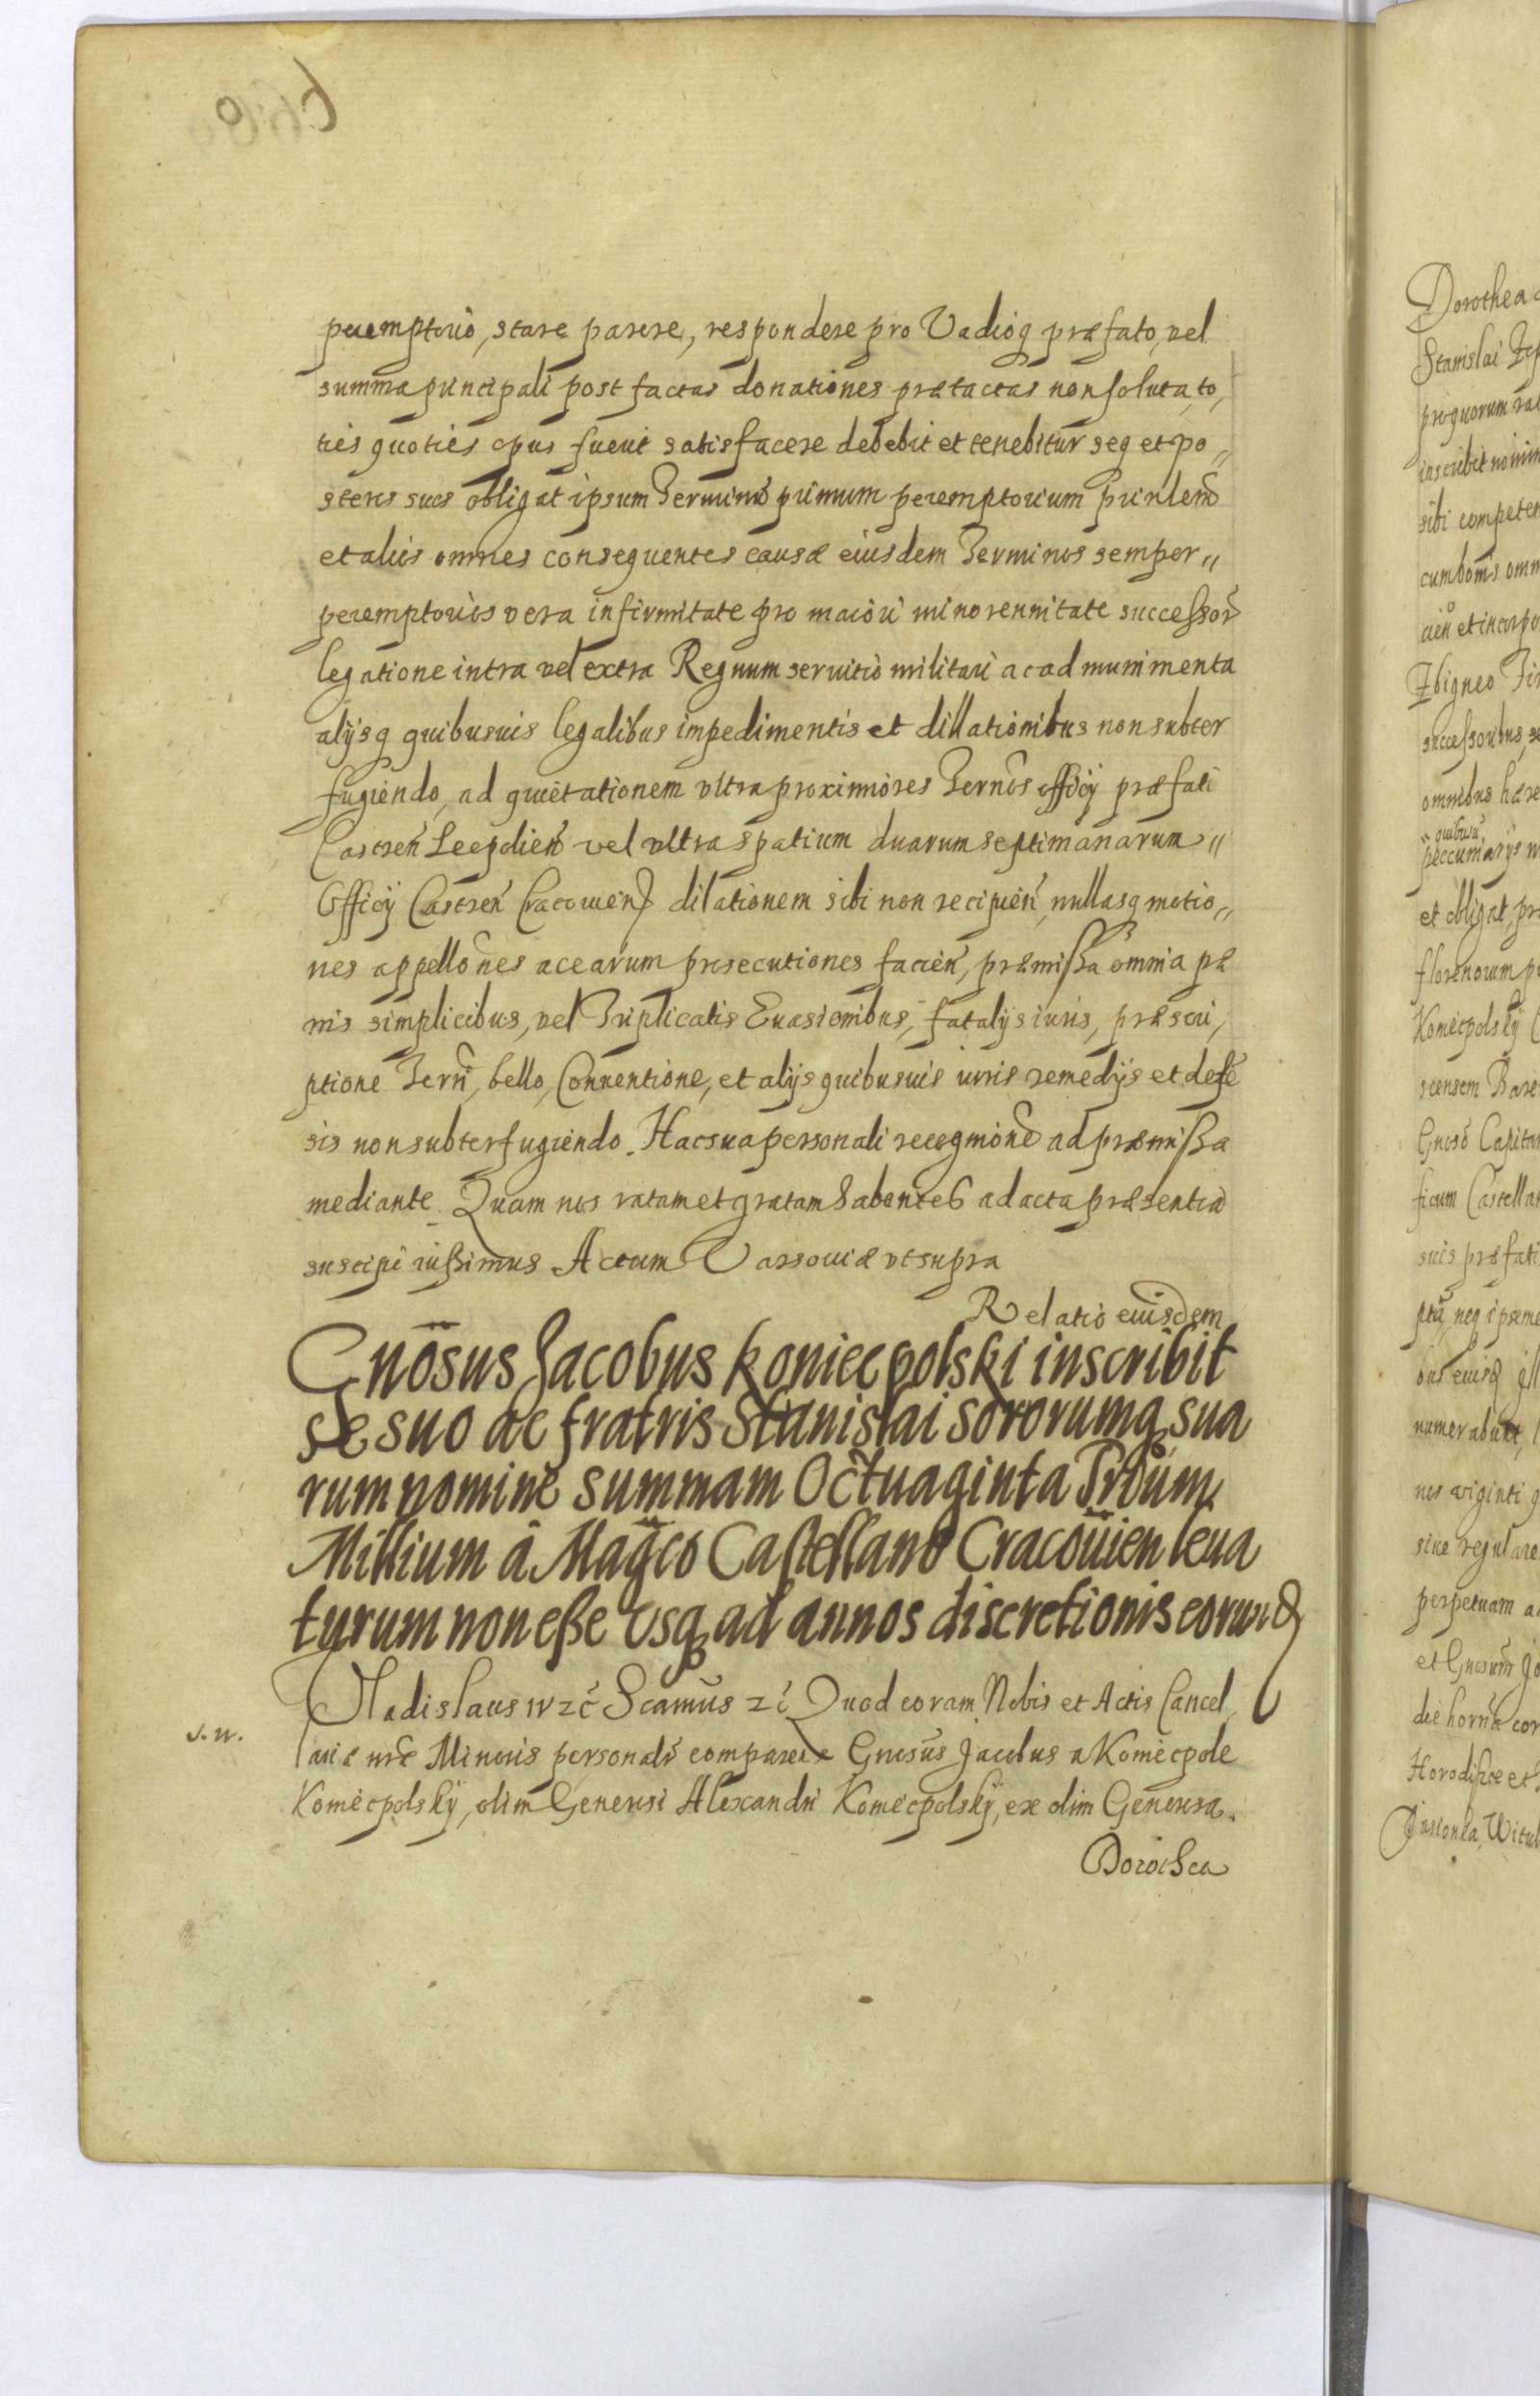 peremptorio, stare parere, respondere pro Vadioq præfato, vel
summa principali post factas donationes prætactas non soluta, to,
ties quoties opus fuerit satisfacere debebit et tenebitur seq et po„
steros suos obligat ipsum Terminũ primum peremptorium
et alios omnes consequentes causæ eiusdem Terminos semper„
peremptorios vera infirmitate pro maiori minorennitate successor̃
legatione intra vel extra Regnum seruitio militari ac ad munimenta
alijsq quibusuis legalibus impedimentis et dillationibus non subter
fugiendo, ad quietationem vltra proximiores Ternos officij præfati
Castreñ Leopolieñ vel vltra spatium duarum septimanarum„
Officij Castreñ Cracouieñ dilationem sibi non recipieñ, nullasq motio„
nes appellones ac earum prosecutiones facieñ, præmissa omnia pæ
nis simplicibus, vel Triplicatis Euasionibus, fatalijs iuris, præscri,
ptione Terñ, bello, Conuentione, et alijs quibusuis iuris remedijs et defẽ
sis non subterfugiendo. Hac sua personali recogmone ad præmissa
mediante. Quam nos ratam et gratam habentes ad acta præsentia
suscipi iussimus Actum Varsouiæ vt supra
Relatio eiusdem
Gnõsus Jacobus Koniecpolski inscribit
se suo ac fratris Stanislai sororumq sua
rum nomine summam Octuaginta Trium
Millium à Magco Castellano Cracouien leua
turum non esse Vsq ad annos discretionis eorund
Vladislaus IV zč Scamus zč Quod coram Nobis et Actis Cancel
J. N.
lariæ nræ Minoris personalr comparens Gnosus Jacobus a Koniecpole
Koniecpolskÿ, olim Generosi Alexandri Koniecpolskÿ, ex olim Generosa.
Dorothea
Dorothea
Stanislai
pro quorum
inscribit nomin
sibi competen
cum bonis omn
et incorpo
Zbigneo
successoribus, se
omnibus hære
quibusu
peccuniarijs
et obligat, pr
florenorum p
Koniecpolskÿ
Bare
Gnoso Capita
ficum Castella
suis præfati
numerabit
nos viginti q
siue regulare
perpetuam a
et Gnosum Jo
die horna cor
Horodiszcze et